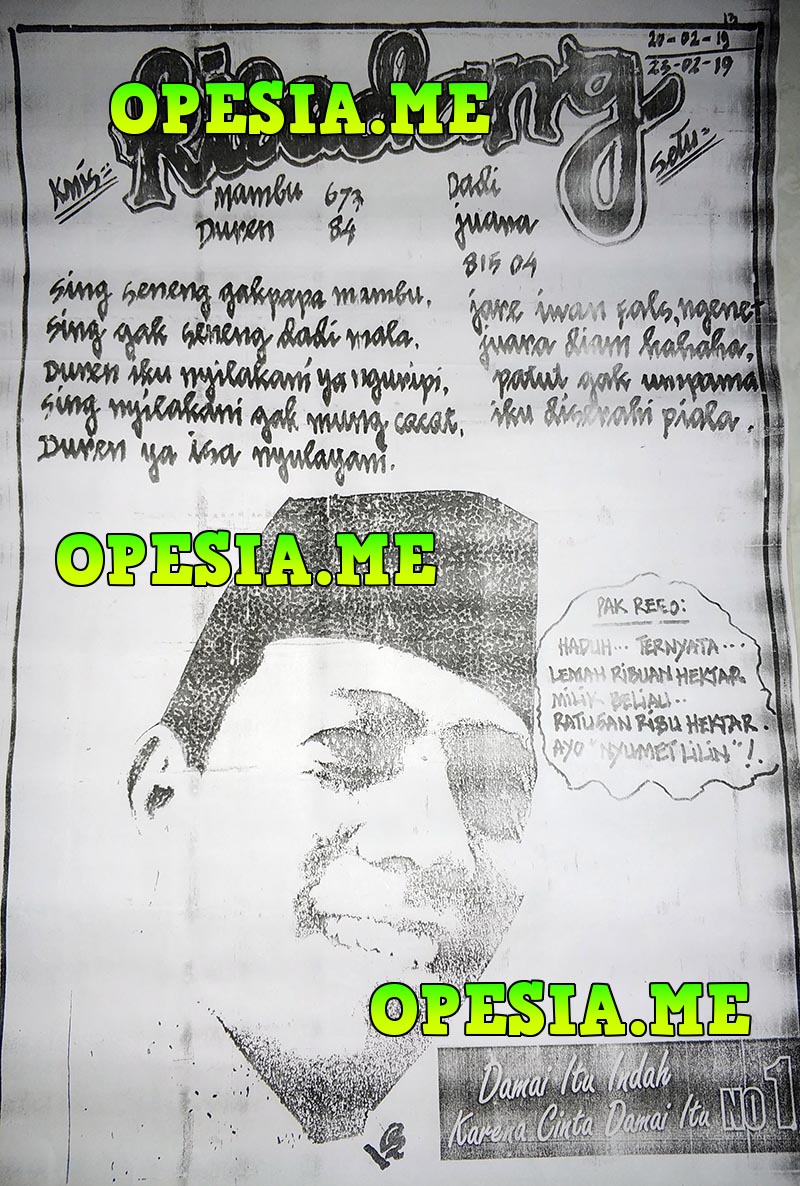 13
20-02-19
23-02-19
OPESIA.ME
Kmis=
Setu=
Mambu 673
Duren 84
Dadi
juara
815 04
Sing seneng gakpapa mambu.
Sing gak seneng dadi mala.
Duren iku nyilakani ya nguripi.
Sing nyilakani gak mung cacat.
Duren ya isa nyulayani.
jare iwan fals, ngenet
juara diam hahaha.
patut gak umpama
iku diserahi piala.
OPESIA.ME
PAK REGO:
HADUH... TERNYATA...
LEMAH RIBUAN HEKTAR.
MILIK BELIAU..
RATUSAN RIBU HEKTAR.
AYO "NYUMET LILIN"!.
OPESIA.ME
Damai Itu Indah
Karena Cinta Damai Itu NO 1